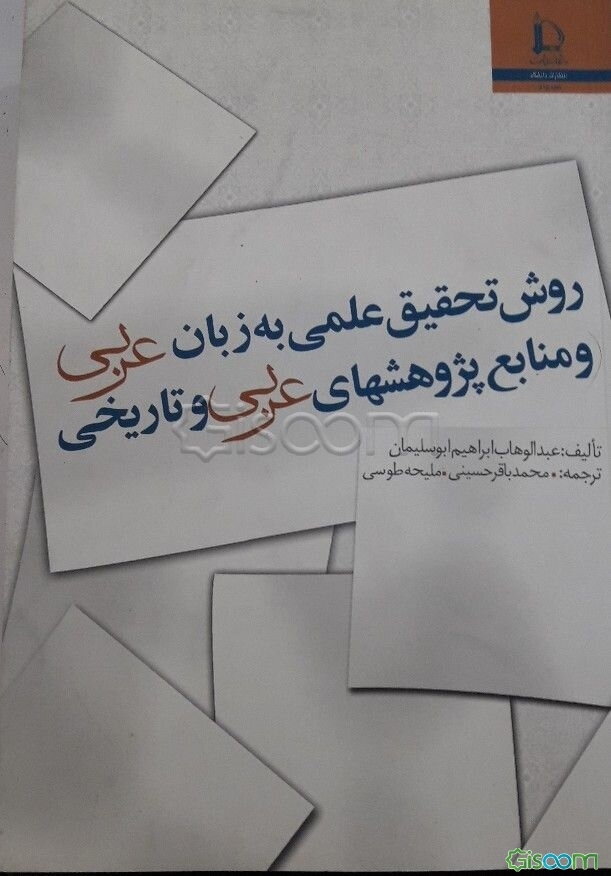 روش تحقیق علمی به زبان عربی
(و منابع پژوهشهای عربی و تاریخی
تألیف: عبدالوهاب ابراهیم ابوسلیمان
ترجمه: • محمدباقر حسینی • ملیحه طوسی
Gisoom
Gisoom